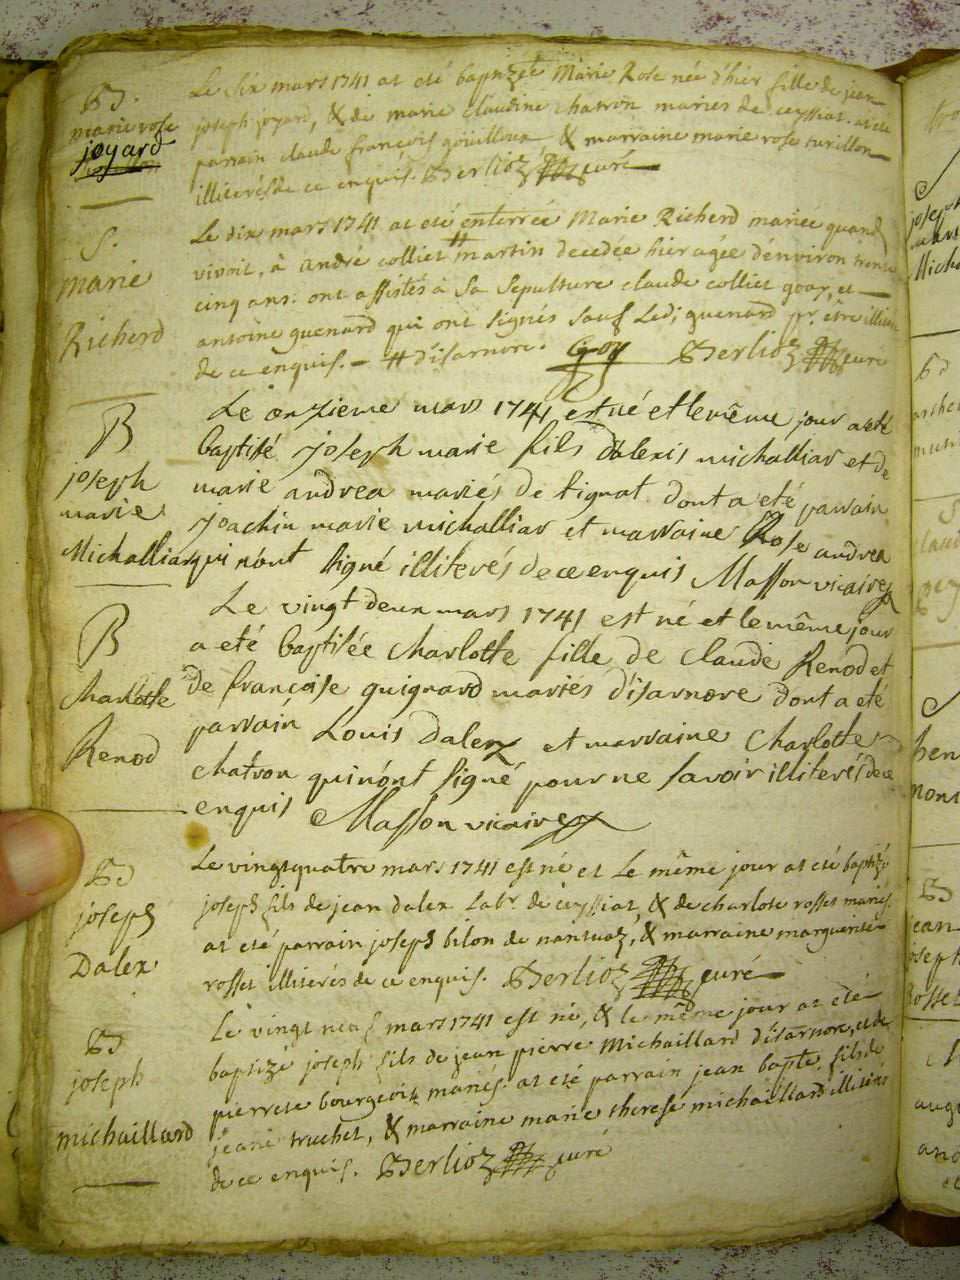 Bd.
marie rose
joyard
Le six mars 1741 at eté baptizée Marie Rose née d'hier fille de jean
joseph joyard, & de marie claudine chatron mariés de ceyssiat. at eté
parrain claude françois goüilloux, & marraine marie rose turillon
illiterés de ce enquis. Berlioz curé
S.
marie
Richerd
Le dix mars 1741 at eté enterrée Marie Richerd mariée quand
vivoit, à andré colliet # martin decedée hier agée d'environ trente
cinq ans. ont assistés a sa sepulture claude colliet goay, et
antoine guenard qui ont signés sauf led; guenard pr. être illiteré
de ce enquis. — # d'isarnore. Goy Berlioz curé
B
joseph
marie
Michalliar
Le onzieme mars 1741 est né et le même jour a eté
baptisé joseph marie fils d'alexis michalliar et de
marie andrea mariés de tignat dont a eté parrain
joachin marie michalliar et marraine Rose andrea
qui n'ont signé illiterés de ce enquis Masson vicaire
B
charlotte
Renod
Le vingt deux mars 1741 est né et le même jour
a eté baptisée charlotte fille de claude Renod et
de françoise guignard mariés d'isarnore dont a eté
parrain Louis dalex et marraine charlotte
chatron qui n'ont signé pour ne savoir illiterés de ce
enquis Masson vicaire
Bd
joseph
Dalex
Le vingtquatre mars 1741 est né et le même jour at eté baptizé
joseph fils de jean dalex labr. de ceyssiat, & de charlote rosset mariés.
at eté parrain joseph bilon de nantuaz, & marraine marguerite
rosset illiterés de ce enquis. Berlioz curé
Bd
joseph
michaillard
Le vingt neuf mars 1741 est né, & le même jour at eté
baptizé joseph fils de jean pierre Michaillard d'isarnore, et de
pierrete bourgeois mariés. at eté parrain jean bapte. fils de
jean truchet, & marraine marie therese michaillard illiterés
de ce enquis. Berlioz curé